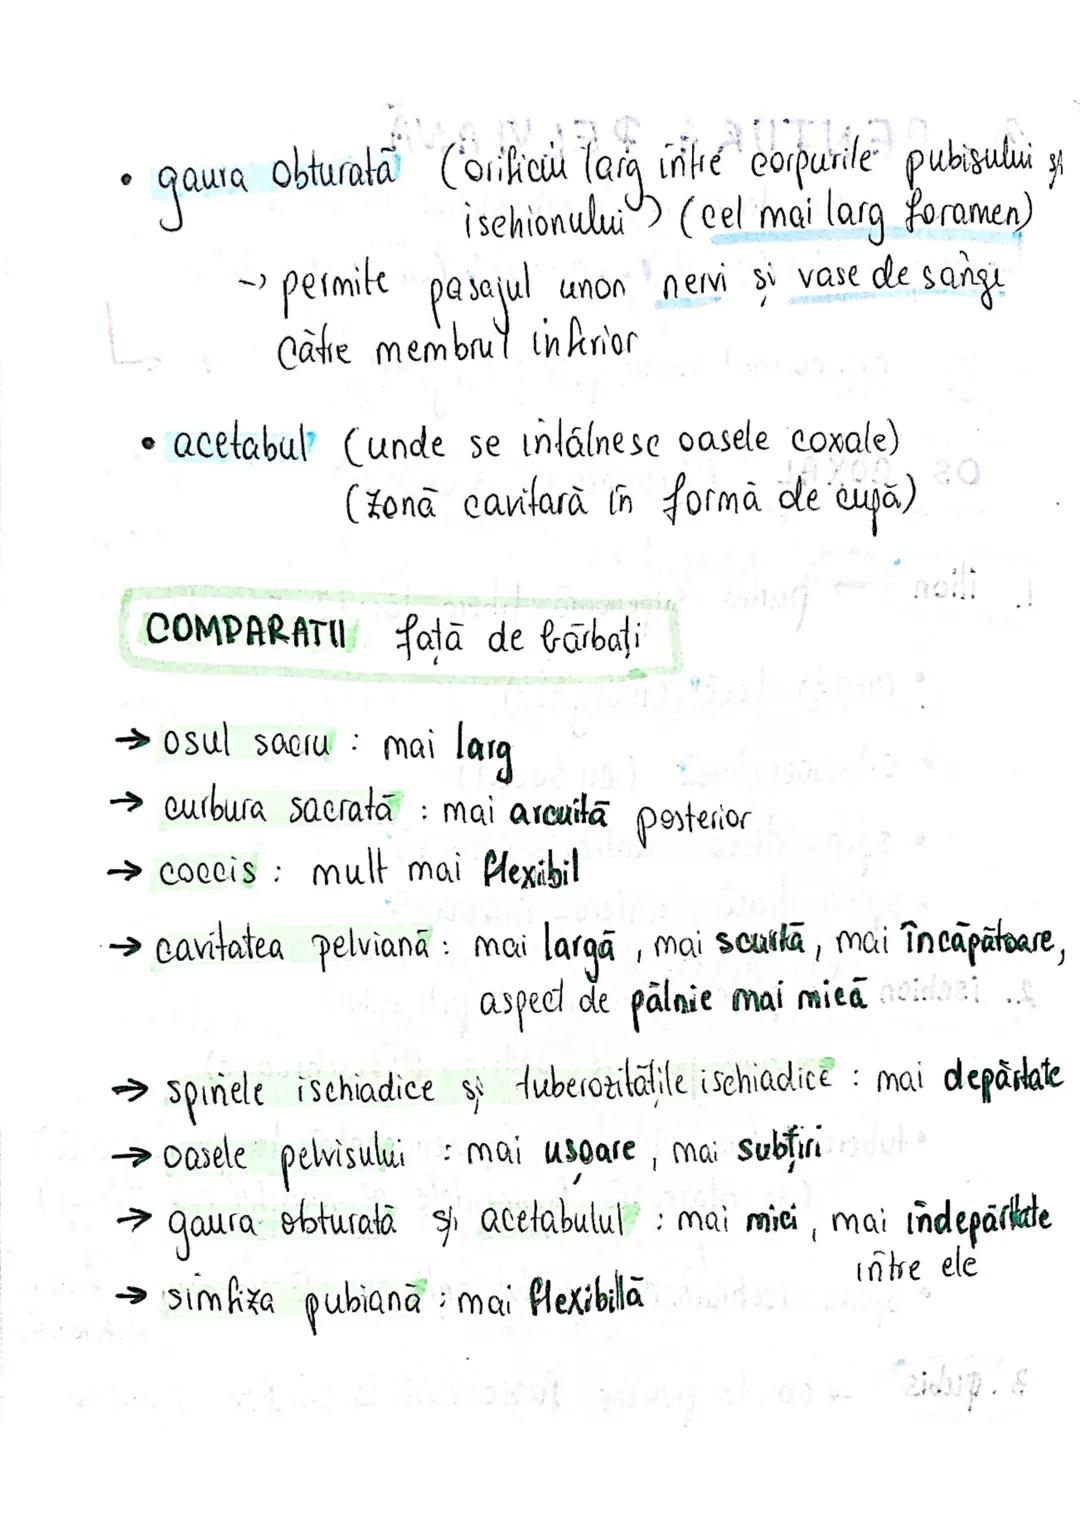 • gaura obturată (orificiu larg între corpurile pubisului și
ischionului) (cel mai larg foramen)
-> permite pasajul unor nervi și vase de sânge
către membrul inferior
• acetabul (unde se întâlnesc oasele coxale)
(zonă cavitară în formă de cupă)
COMPARAȚII față de bărbați
→ osul sacru : mai larg
→ curbura sacrată : mai arcuită posterior
→ coccis : mult mai flexibil
→ cavitatea pelviană : mai largă, mai scurtă, mai încăpătoare,
aspect de pâlnie mai mică
→ spinele ischiadice și tuberozitățile ischiadice : mai depărtate
→ oasele pelvisului : mai ușoare, mai subțiri
→ gaura obturată și acetabulul : mai mici, mai îndepărtate
între ele
→ simfiza pubiană : mai flexibilă